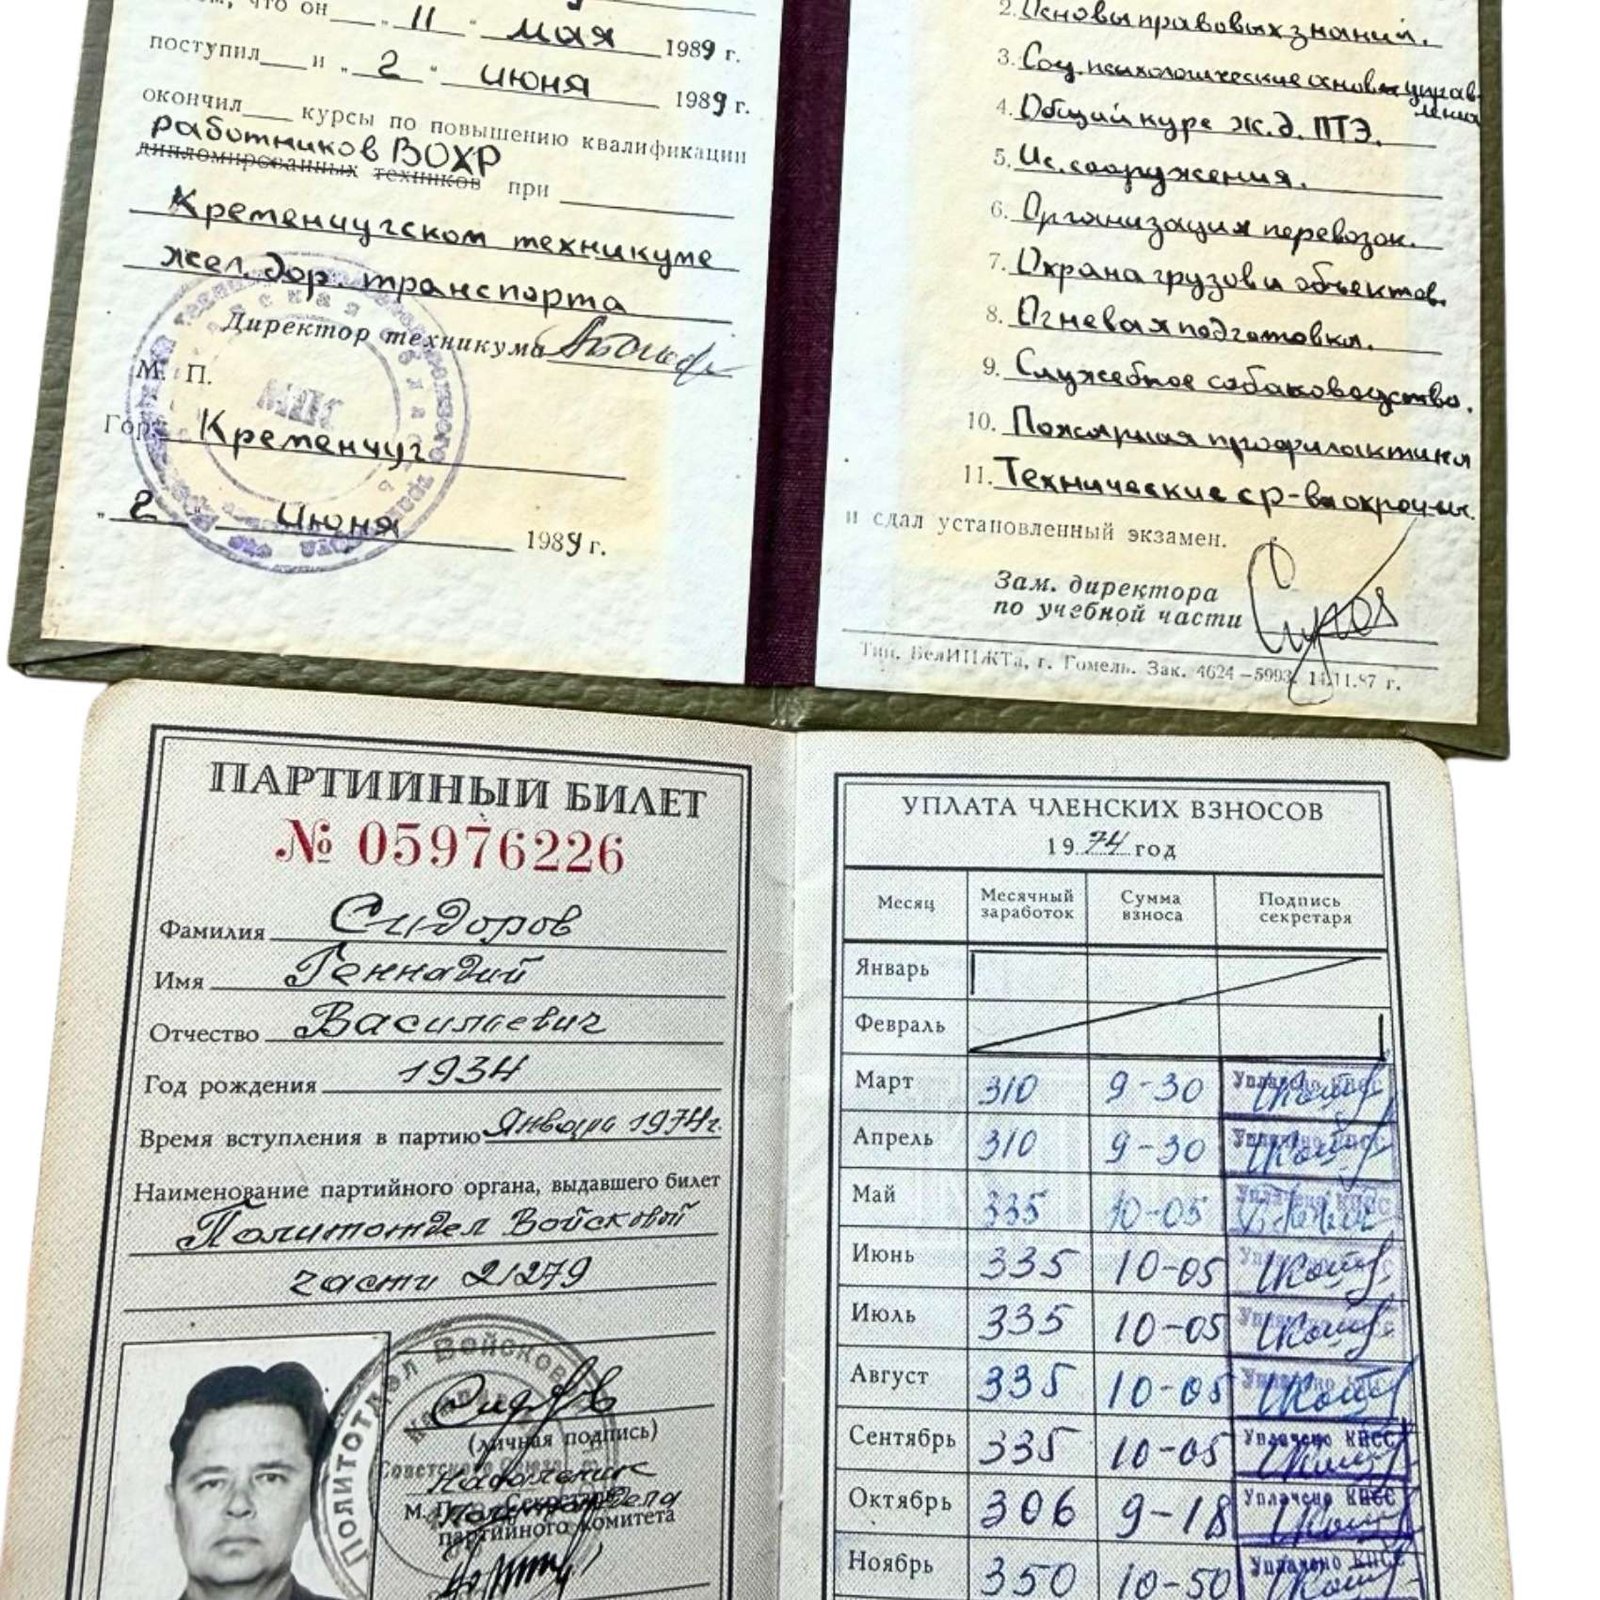 что он "11" мая 1989 г.
поступил и "2" июня 1989 г.
окончил курсы по повышению квалификации
работников ВОХР
дипломированных техников при
Кременчугском техникуме
жел. дор. транспорта
Директор техникума
М. П.
Гор. Кременчуг
"2" июня 1989 г.
2. Основы правовых знаний.
3. Соц. психологические основы управ-
ления
4. Общий курс ж.д. ПТЭ.
5. Ис. сооружения.
6. Организация перевозок.
7. Охрана грузов и объектов.
8. Огневая подготовка.
9. Служебное собаководство.
10. Пожарная профилактика
11. Технические ср-ва охраны.
и сдал установленный экзамен.
Зам. директора
по учебной части
Тип. БелИИЖТа, г. Гомель. Зак. 4624—5993. 14.11.87 г.
ПАРТИЙНЫЙ БИЛЕТ
№ 05976226
Фамилия Сидоров
Имя Геннадий
Отчество Васильевич
Год рождения 1934
Время вступления в партию Январь 1974г.
Наименование партийного органа, выдавшего билет
Политотдел Войсковой
части 21279
ПОЛИТОТДЕЛ Войсков
Сидоров
(личная подпись)
Советского Союза
Начальник
М. П. Секретарь
Политотдела
партийного комитета
УПЛАТА ЧЛЕНСКИХ ВЗНОСОВ
1974 год
Месяц Месячный заработок Сумма взноса Подпись секретаря
Январь
Февраль
Март 310 9-30 Уплачено КПСС
Апрель 310 9-30 Уплачено КПСС
Май 335 10-05 Уплачено КПСС
Июнь 335 10-05
Июль 335 10-05
Август 335 10-05
Сентябрь 335 10-05 Уплачено КПСС
Октябрь 306 9-18 Уплачено КПСС
Ноябрь 350 10-50 Уплачено КПСС